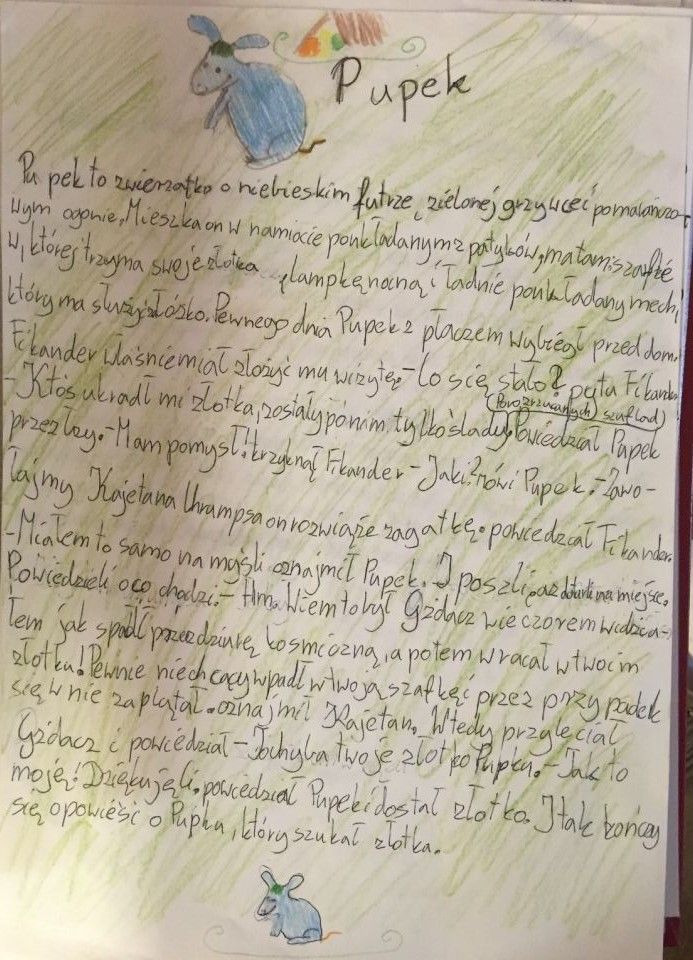 Pupek
Pupek to zwierzątko o niebieskim futrze, zielonej grzywce i pomarańczo-
wym ogonie. Mieszka on w namiocie poukładanym z patyków, ma tam szafkę
w, której trzyma swoje złotka, lampkę nocną i ładnie poukładany mech,
który ma służyć łóżko. Pewnego dnia Pupek z płaczem wybiegł przed dom.
Fikander właśnie miał złożyć mu wizytę. - Co się stało? pyta Fikander
- Ktoś ukradł mi złotka, zostały po nim tylko ślady porozrzucanych szuflad! Powiedział Pupek
przez łzy. - Mam pomysł! krzyknął Fikander - Jaki? mówi Pupek. - Zawo-
łajmy Kajetana Chrumpsa on rozwiąże zagatkę. powiedział Fikander.
- Miałem to samo na myśli oznajmił Pupek. I poszli, aż dotarli na miejsce.
Powiedzieli o co chodzi. - Hm. Wiem to był Gżdacz wieczorem widzia-
łem jak spadł przez dziurę kosmiczną, a potem wracał w twoim
złotku! Pewnie niechcący wpadł w twoją szafkę i przez przypadek
się w nie zaplątał. oznajmił Kajetan. Wtedy przyleciał
Gżdacz i powiedział - To chyba twoje złotko Pupku. - Tak to
moje! Dziękuję Ci. powiedział Pupek i dostał złotko. I tak kończy
się opowieść o Pupku, który szukał złotka.